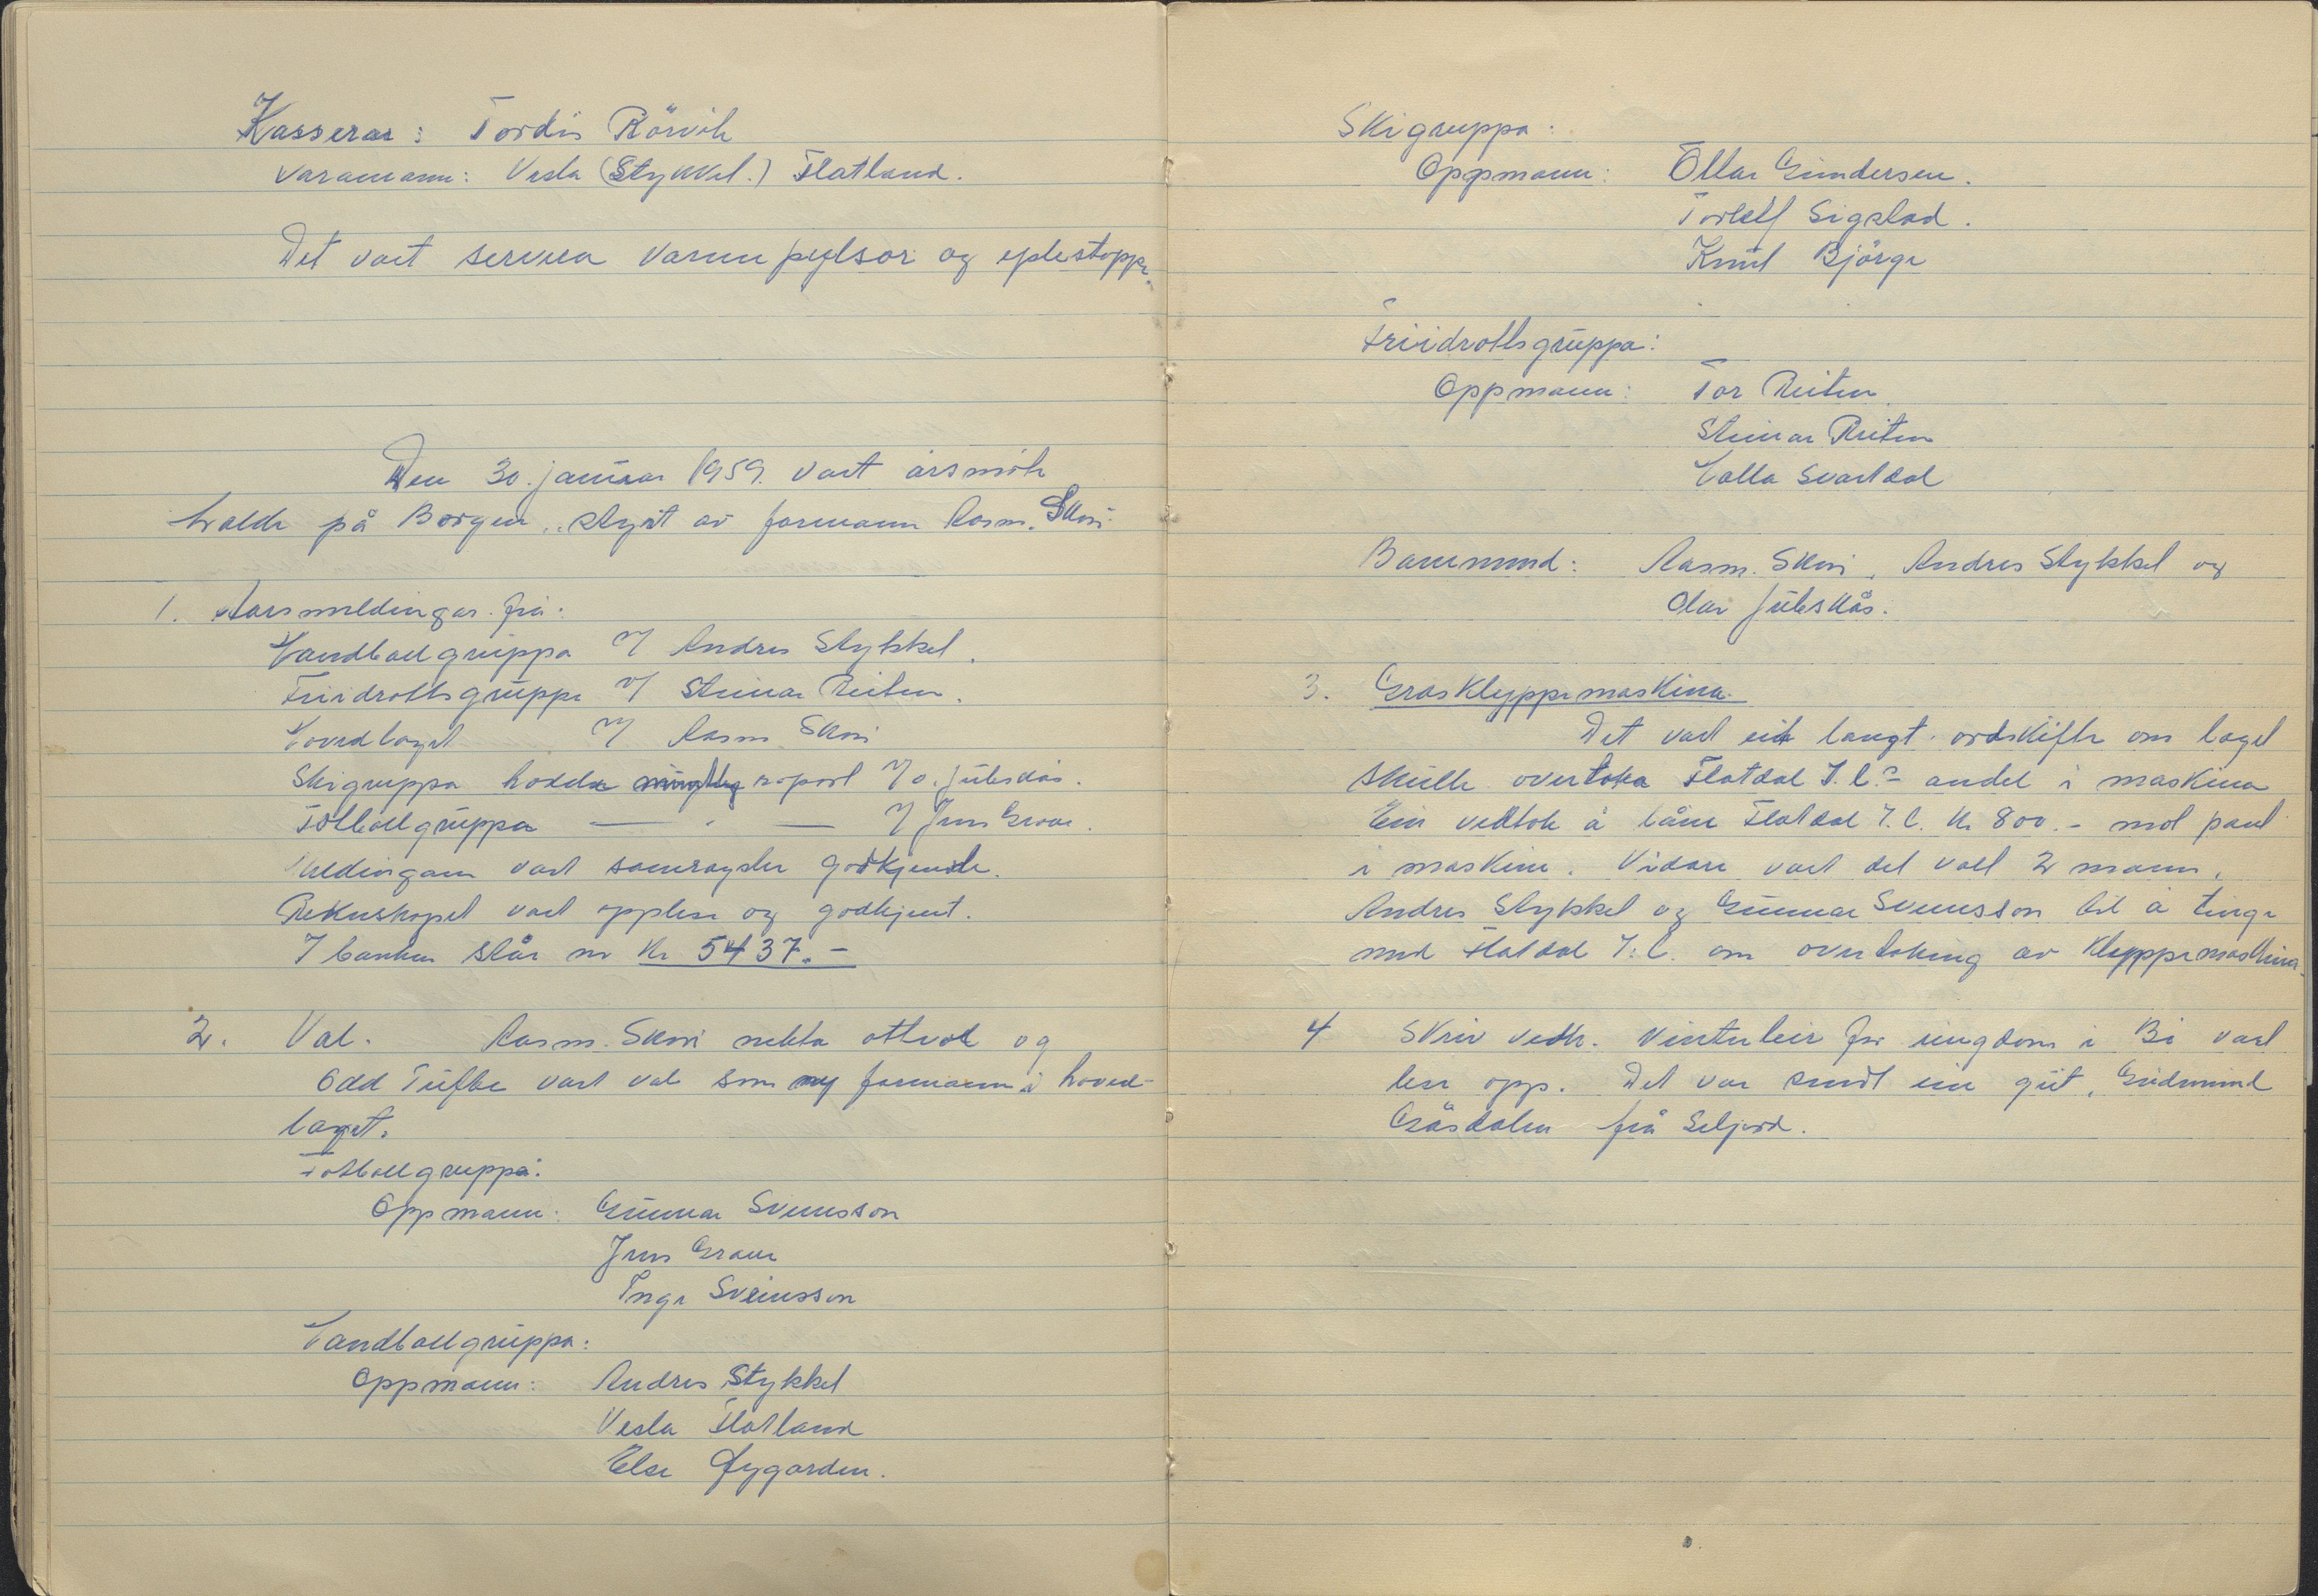 Kasserar: Tordis Rörvik
varamann: Vesla (Stykkel.) Flatland.
Det vart servera varme pylsor og eplestoppe.
Den 30. januar 1959. vart årsmöte
halde på Borgen, styrt av formann Rasm. Skori.
1. Aarsmeldingar frå:
Handballgruppa v/ Andres Stykkel.
Friidrottsgruppe v/ Steinar Reiten.
Hovedlaget v/ Rasm Skori
Skigruppa hadde munleg raport v/ O. Juteskås.
Fotballgruppa — " — v/ Jens Grave.
Meldingane vart samrøyster godkjende.
Rekneskapet vart opplese og godkjent.
I banken står no kr 5437.-
2. Val. Rasm. Skori nekta attval og
Odd Tufte vart val som ny formann i hoved-
laget.
Fotballgruppa:
Oppmann: Gunnar Sveinsson
Jens Grave
Inge Sveinsson
Handballgruppa:
Oppmann: Andres Stykkel
Vesla Flatland
Else Øygarden.
Skigruppa:
Oppmann: Ottar Gundersen.
Torleif Sigstad.
Knut Björge
Friidrottsgruppa:
Oppmann: Tor Reiten
Steinar Reiten
Halla Svartdal
Banemnd: Rasm. Skori, Andres Stykkel og
Olav Juteskås.
3. Grasklyppemaskina.
Det vart eit langt ordskifte om laget
skulle overtaka Flatdal I.L.s andel i maskina
Ein vedtok å låne Flatdal I.L. kr 800.- mot pant
i maskine. Vidare vart det valt 2 mann,
Andres Stykkel og Gunnar Sveinsson til å tinge
med Flatdal I.L. om overtaking av klyppemaskina.
4 Skriv vedk. vinterleir for ungdom i Bö vart
lese opp. Det var sendt ein gut, Gudmund
Gåsdalen frå Seljord.